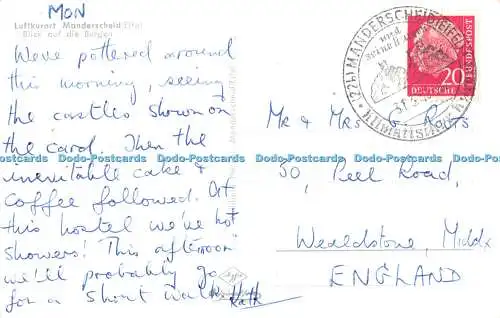 MON
Luftkurort Manderscheid/Eifel
Blick auf die Burgen
We've pottered around
this morning, seeing
the castles shown on
the card. Then the
inevitable cake &
coffee followed. At
this hostel we've hot
showers! This afternoon
we'll probably go
for a short walk.
Kath
(22b) MANDERSCHEID (EIFEL)
und
seine Burgen
DEUTSCHE BUNDESPOST
20
Mr & Mrs G. Potts
50, Peel Road,
Wealdstone, Middx
ENGLAND
Dodo-Postcards Dodo-Postcards Dodo-Postcards Dodo-Postcards Dodo-Postcards Dodo-Postcards